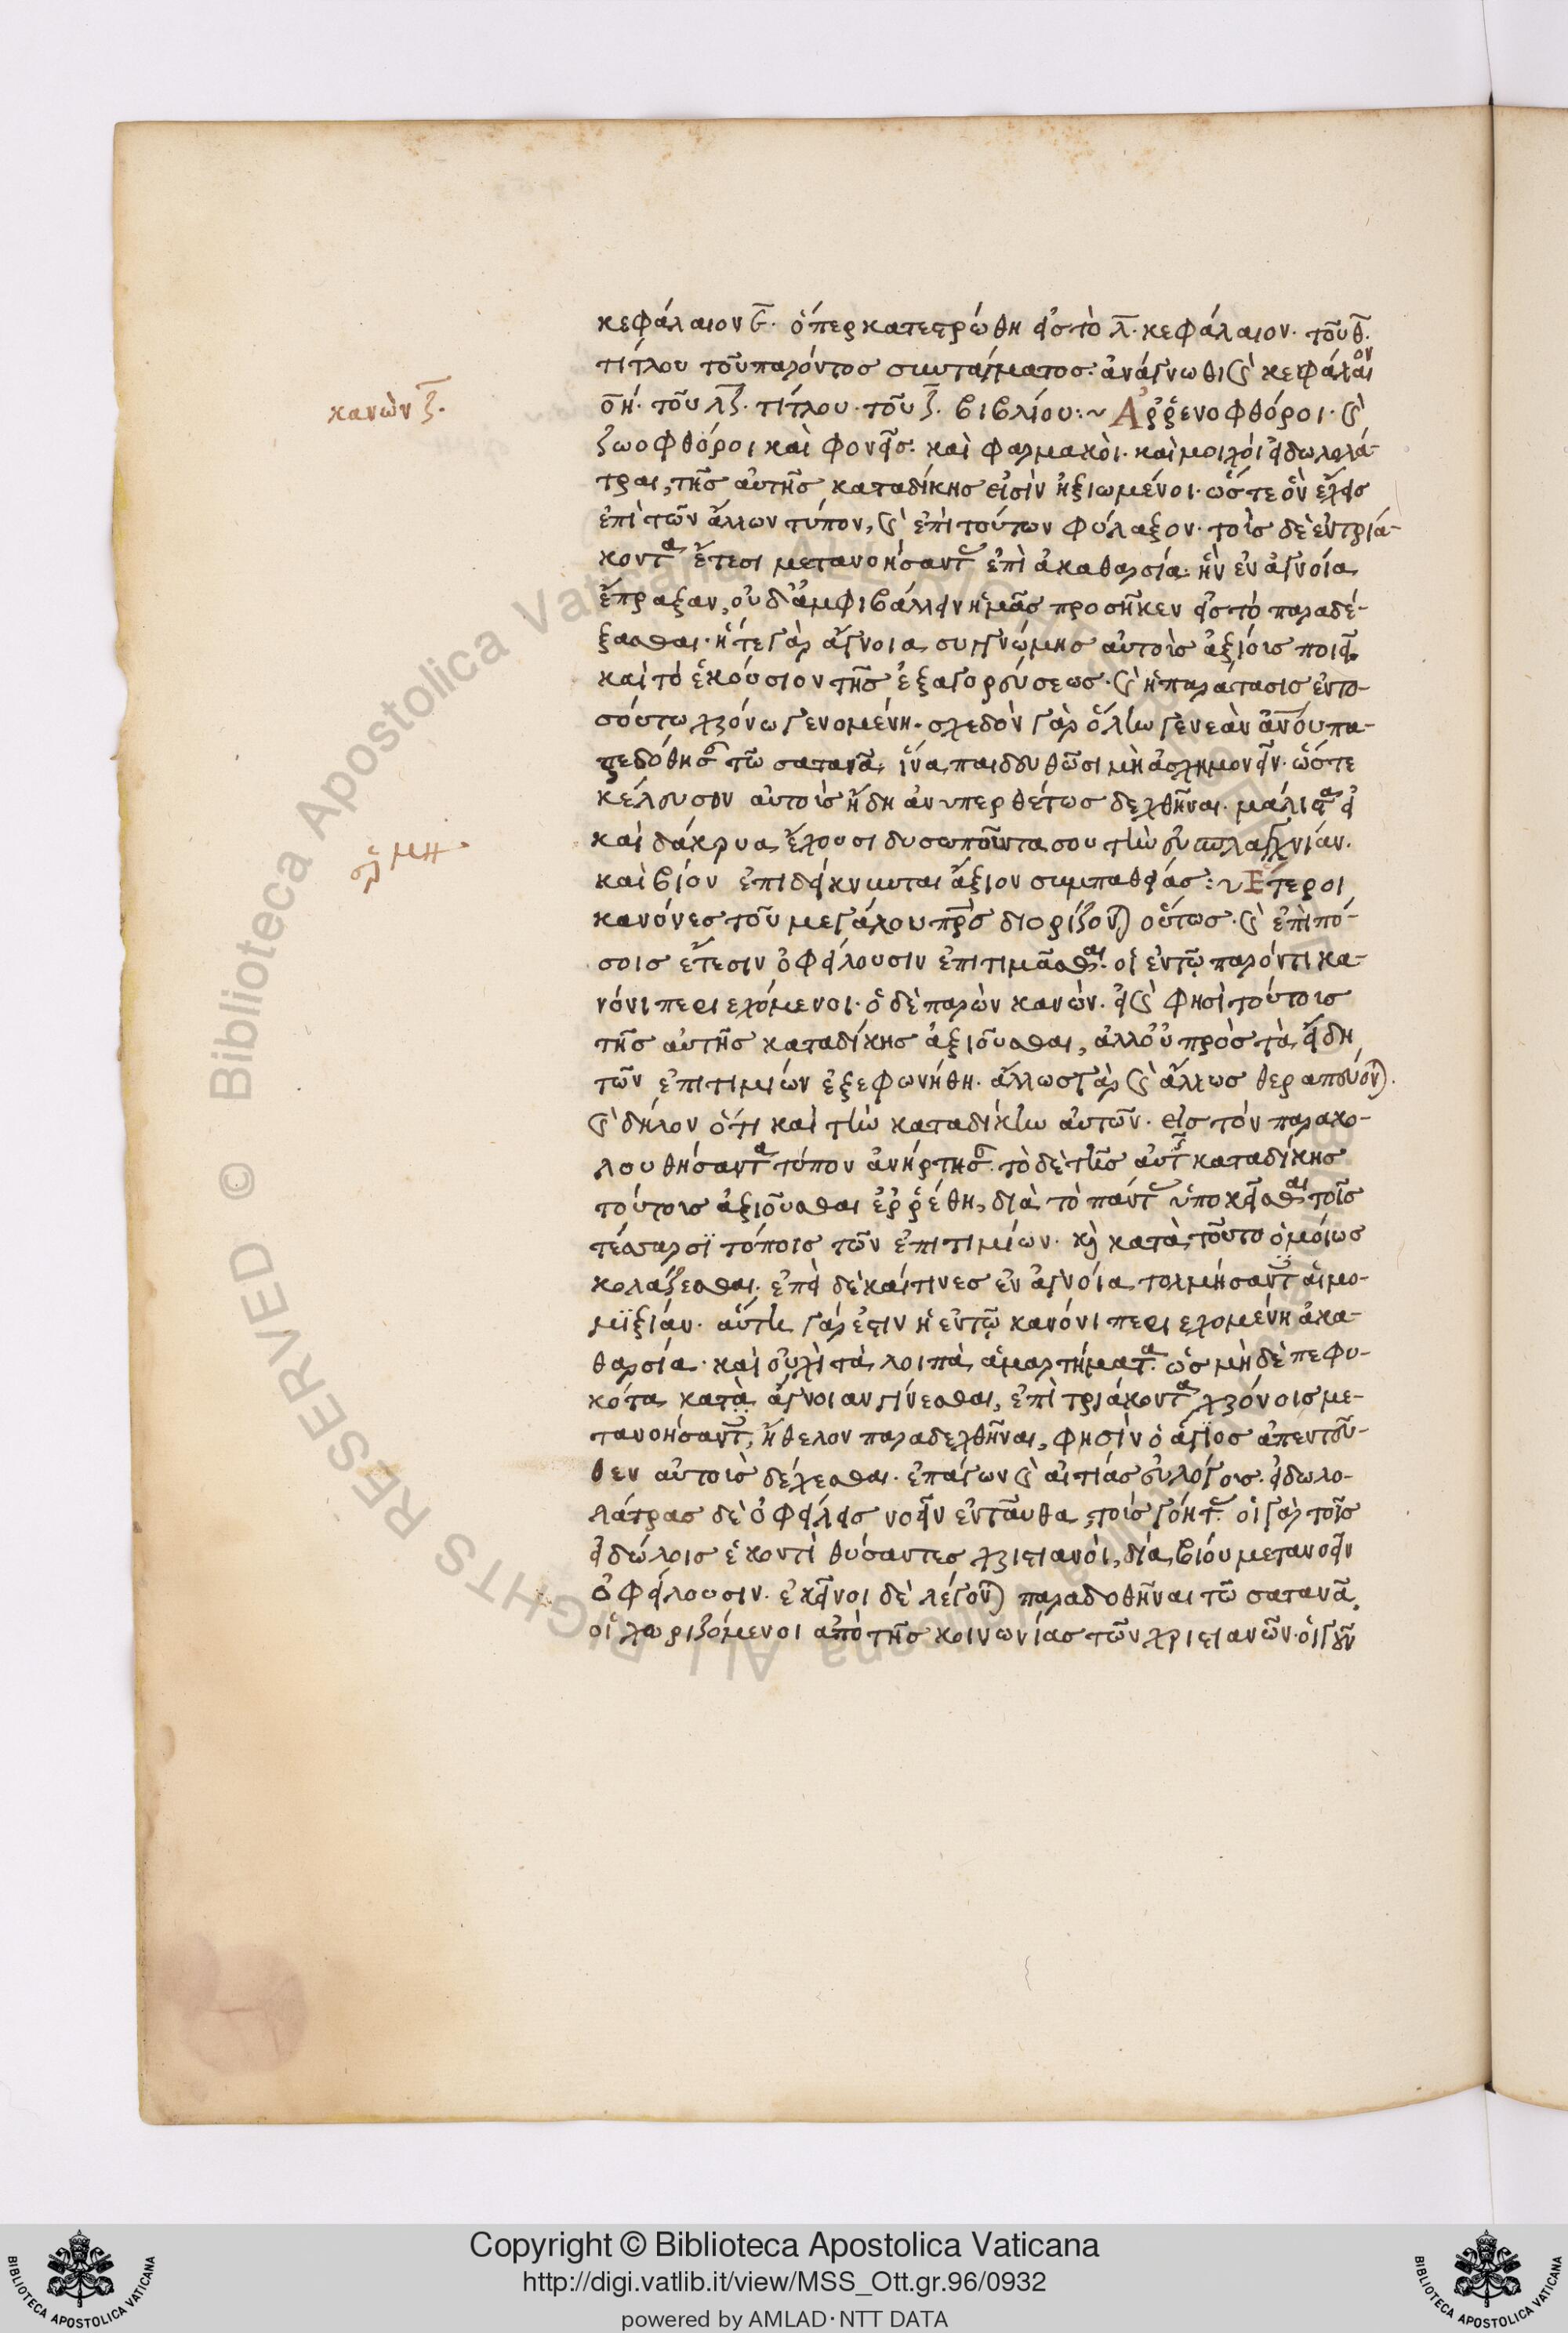 κεφάλαιον ϛ̅. ὅπερ κατεστρώθη εἰς τὸ λ̅. κεφάλαιον. τοῦ θ̅.
τίτλου τοῦ παρόντος συντάγματος. ἀνάγνωθι καὶ κεφάλαιον
κανὼν ζ̅.
ο̅η̅. τοῦ λ̅ζ̅. τίτλου. τοῦ ζ̅. βιβλίου:~ Ἀῤῥενοφθόροι. καὶ
ζωοφθόροι καὶ φονεῖς. καὶ φαρμακοὶ. καὶ μοιχοὶ εἰδωλολά-
τραι, τῆς αὐτῆς καταδίκης εἰσὶν ἠξιωμένοι. ὥστε ὃν ἔχεις
ἐπὶ τῶν ἄλλων τύπον, καὶ ἐπὶ τούτων φύλαξον. τοῖς δὲ ἐν τριά-
κοντα ἔτεσι μετανοήσαντας ἐπὶ ἀκαθαρσία. ἣν ἐν ἀγνοία
ἔπραξαν, οὐδ' ἀμφιβάλλειν ἡμᾶς προσῆκεν εἰς τὸ παραδέ-
ξασθαι. ἥ τε γὰρ ἄγνοια συγγνώμης αὐτοὺς ἀξίους ποιεῖ.
καὶ τὸ ἑκούσιον τῆς ἐξαγορεύσεως. καὶ ἡ παράτασις ἐν το-
σούτω χρόνω γενομένη. σχεδὸν γὰρ ὅλην γενεὰν ἀν̅ου πα-
ρεδόθησαν τῶ σατανᾶ, ἵνα παιδευθῶσι μὴ ἀσχημονεῖν. ὥστε
κέλευσον αὐτοὺς ἤδη ἀνυπερθέτως δεχθῆναι. μάλιστα εἰ
καὶ δάκρυα ἔχουσι δυσωποῦντα σου τὴν εὐσπλαγχνίαν.
καὶ βίον ἐπιδείκνυνται ἄξιον συμπαθείας:~ Ἕτεροι
κανόνες τοῦ μεγάλου πρ̅ς διορίζονται οὕτως. καὶ ἐπὶ πό-
σοις ἔτεσιν ὀφείλουσιν ἐπιτιμᾶσθαι. οἱ ἐν τῷ παρόντι κα-
νόνι περιεχόμενοι. ὁ δὲ παρὼν κανών. εἰ καὶ φησὶ τούτοις
τῆς αὐτῆς καταδίκης ἀξιοῦσθαι, ἀλλ' οὐ πρὸς τὰ εἴδη
τῶν ἐπιτιμιών ἐξεφωνήθη. ἄλλως γὰρ καὶ ἄλλως θεραπεύονται.
καὶ δῆλον ὅτι καὶ τὴν καταδίκην αὐτῶν. εἰς τὸν παρακο-
λουθήσαντα τόπον ἀνήρτησε. τὸ δὲ τῆς αὐτῆς καταδίκης
τούτοις ἀξιοῦσθαι ἐῤῥέθη, διὰ τὸ πάντας ὑποκεῖσθαι τοῖς
τέσσαρσϊ τόποις τῶν ἐπιτιμίων. καὶ κατὰ τοῦτο ὁμοίως
κολάζεσθαι. ἐπεὶ δὲ καί τινες ἐν ἀγνοία τολμήσαντες αἱμο-
μϊξιάν. αὕτη γάρ ἐστιν ἡ ἐν τῷ κανόνι περιεχομένη ἀκα-
θαρσία. καὶ οὐχὶ τὰ λοιπὰ ἁμαρτήματα. ὡς μὴ δὲ πεφυ-
κότα κατὰ ἄγνοιαν γίνεσθαι, ἐπὶ τριάκοντα χρόνοις με-
τανοήσαντες, ἤθελον παραδεχθῆναι, φησὶν ὁ ἅγϊος ἀπεντεῦ-
θεν αὐτοὺς δέχεσθαι. ἐπάγων καὶ αἰτίας εὐλόγους. εἰδωλο-
λάτρας δὲ ὀφείλεις νοεῖν ἐνταῦθα, τοὺς γόητας. οἱ γὰρ τοῖς
εἰδώλοις ἑκοντὶ θύσαντες χριστιανοὶ, διὰ βιόυ μετανοεῖν
ὀφείλουσιν. ἐκεῖνοι δὲ λέγονται παραδοθῆναι τῶ σατανᾶ,
οἱ χωριζόμενοι ἀπὸ τῆς κοινωνίας τῶν χριστιανῶν. οἱ γοῦν
Copyright © Biblioteca Apostolica Vaticana
http://digi.vatlib.it/view/MSS_Ott.gr.96/0932
powered by AMLAD·NTT DATA
BIBLIOTECA APOSTOLICA VATICANA
BIBLIOTECA APOSTOLICA VATICANA